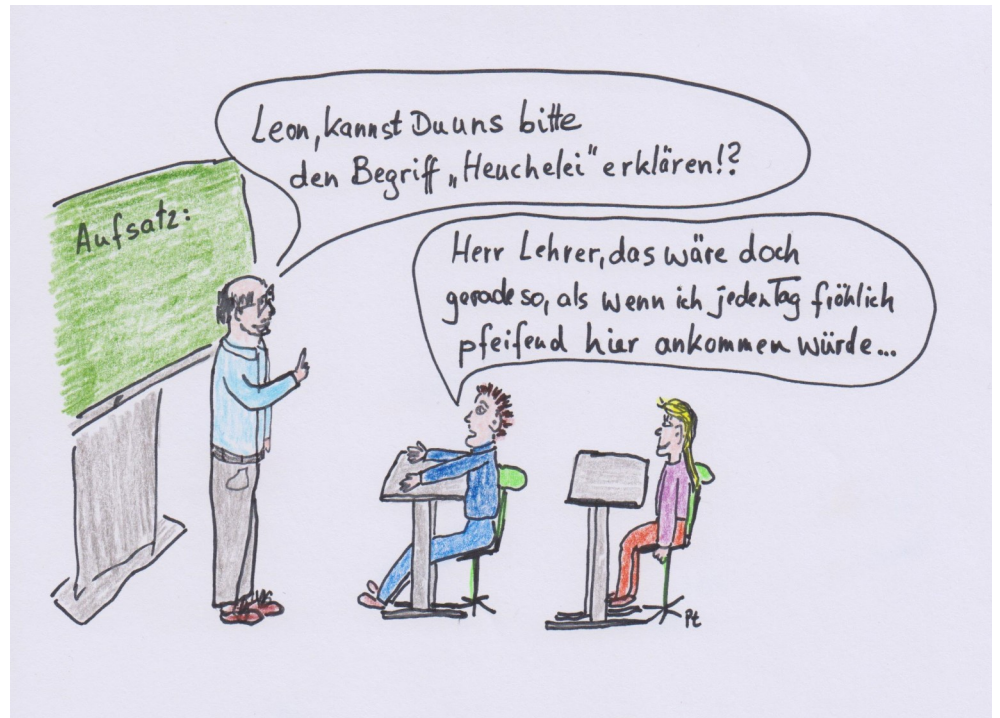 Leon, kannst Du uns bitte
den Begriff „Heuchelei" erklären!?
Aufsatz:
Herr Lehrer, das wäre doch
gerade so, als wenn ich jeden Tag fröhlich
pfeifend hier ankommen würde...
Pt